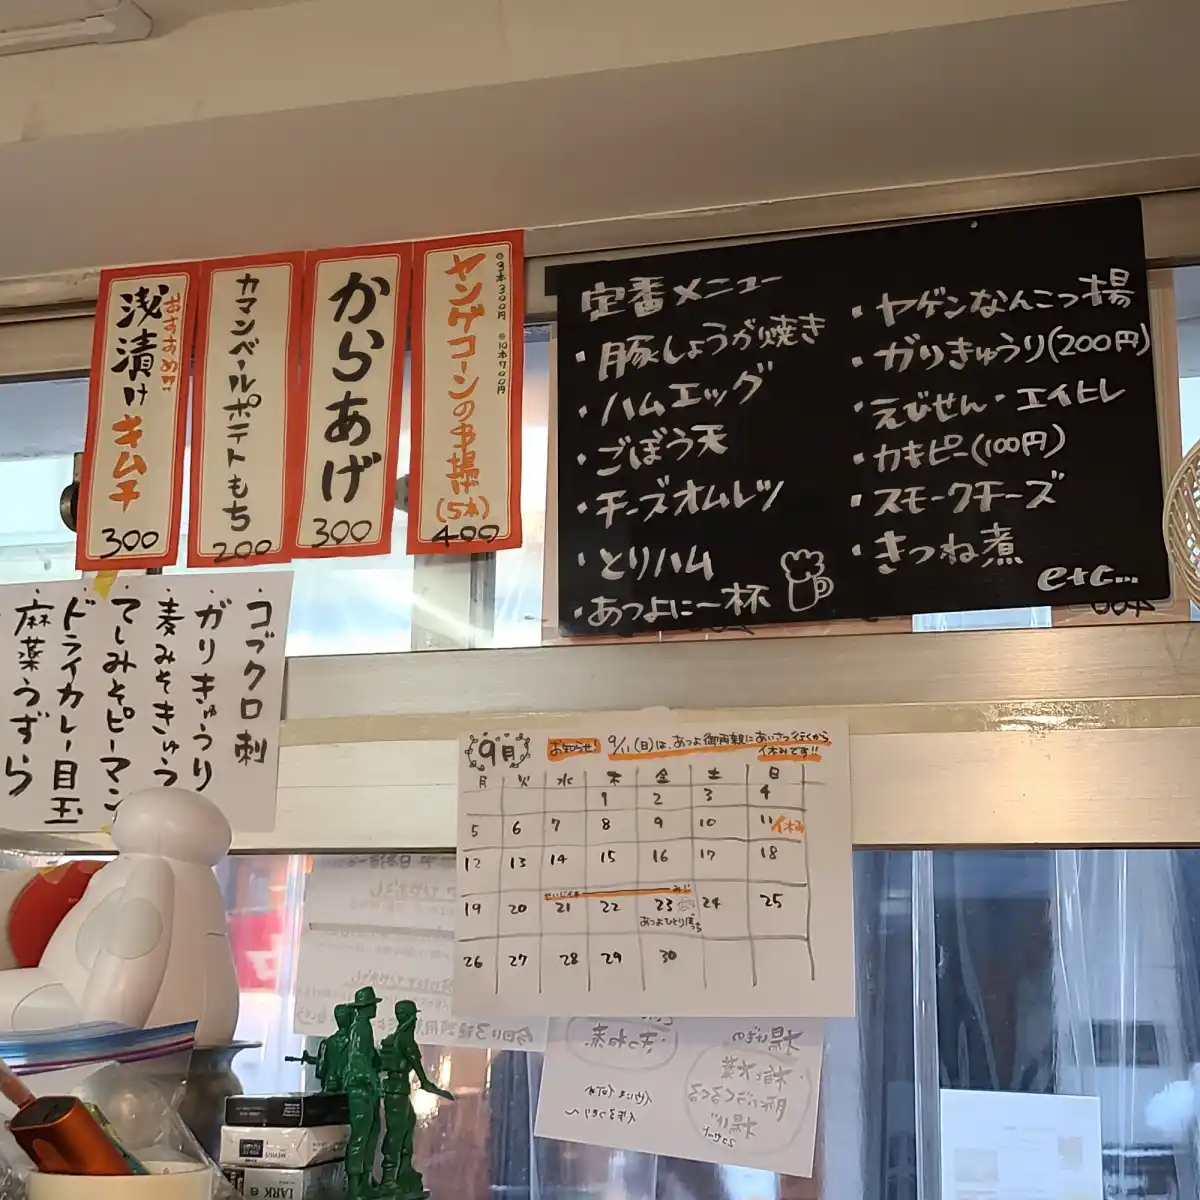 おすすめ!!
浅漬けキムチ
300
カマンベールポテトもち
200
からあげ
300
ヤングコーンの串揚げ
(5本)
400
◎3本300円 ◎10本700円
定番メニュー
・豚しょうが焼き
・ハムエッグ
・ごぼう天
・チーズオムレツ
・とりハム
・あつよに一杯
・ヤゲンなんこつ揚
・ガリきゅうり(200円)
・えびせん・エイヒレ
・カキピー(100円)
・スモークチーズ
・きつね煮
etc...
・コブクロ刺
・ガリきゅうり
・麦みそきゅう
・てしみそピーマン
・ドライカレー目玉
・麻薬うずら
9月
お知らせ! 9/11(日)は、あつよ御両親にあいさつ行くから
休みです!!
月 火 水 木 金 土 日
1 2 3 4
5 6 7 8 9 10 11 休み
12 13 14 15 16 17 18
19 20 21 22 23 24 25
あつよひとりぼっち
26 27 28 29 30
きつね煮
揚げもの
LARK